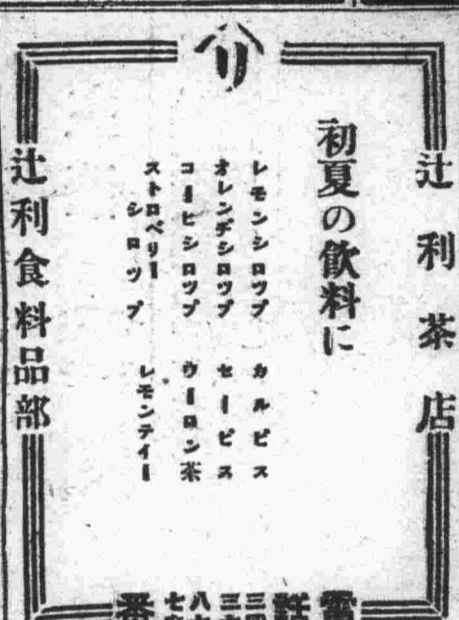 リ
辻利茶店
初夏の飲料に
レモンシロツプ
カルピス
オレンヂシロツプ
セーピス
コーヒシロツプ
ウーロン茶
ストロベリー
シロツプ
レモンテイー
辻利食料品部
電話
番